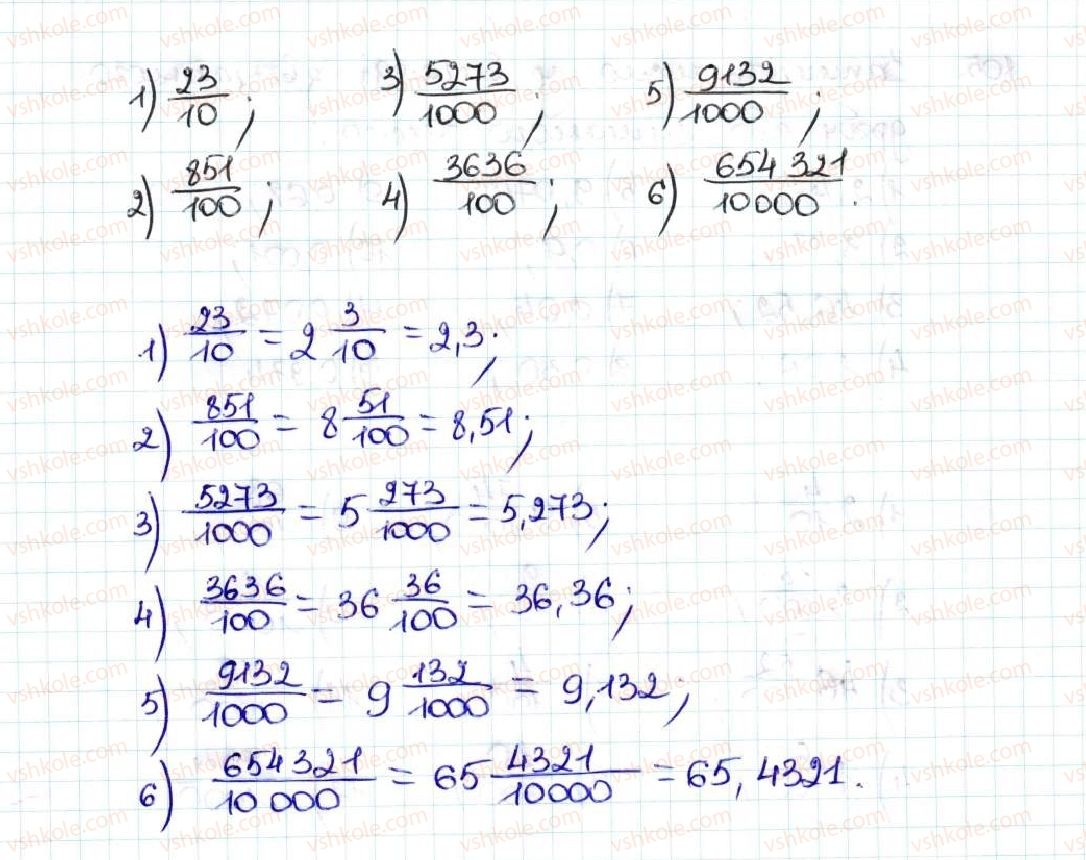 1) 23/10; 3) 5273/1000; 5) 9132/1000;
2) 851/100; 4) 3636/100; 6) 654 321/10000.
1) 23/10 = 2 3/10 = 2,3;
2) 851/100 = 8 51/100 = 8,51;
3) 5273/1000 = 5 273/1000 = 5,273;
4) 3636/100 = 36 36/100 = 36,36;
5) 9132/1000 = 9 132/1000 = 9,132;
6) 654 321/10 000 = 65 4321/10000 = 65,4321.
vshkole.com